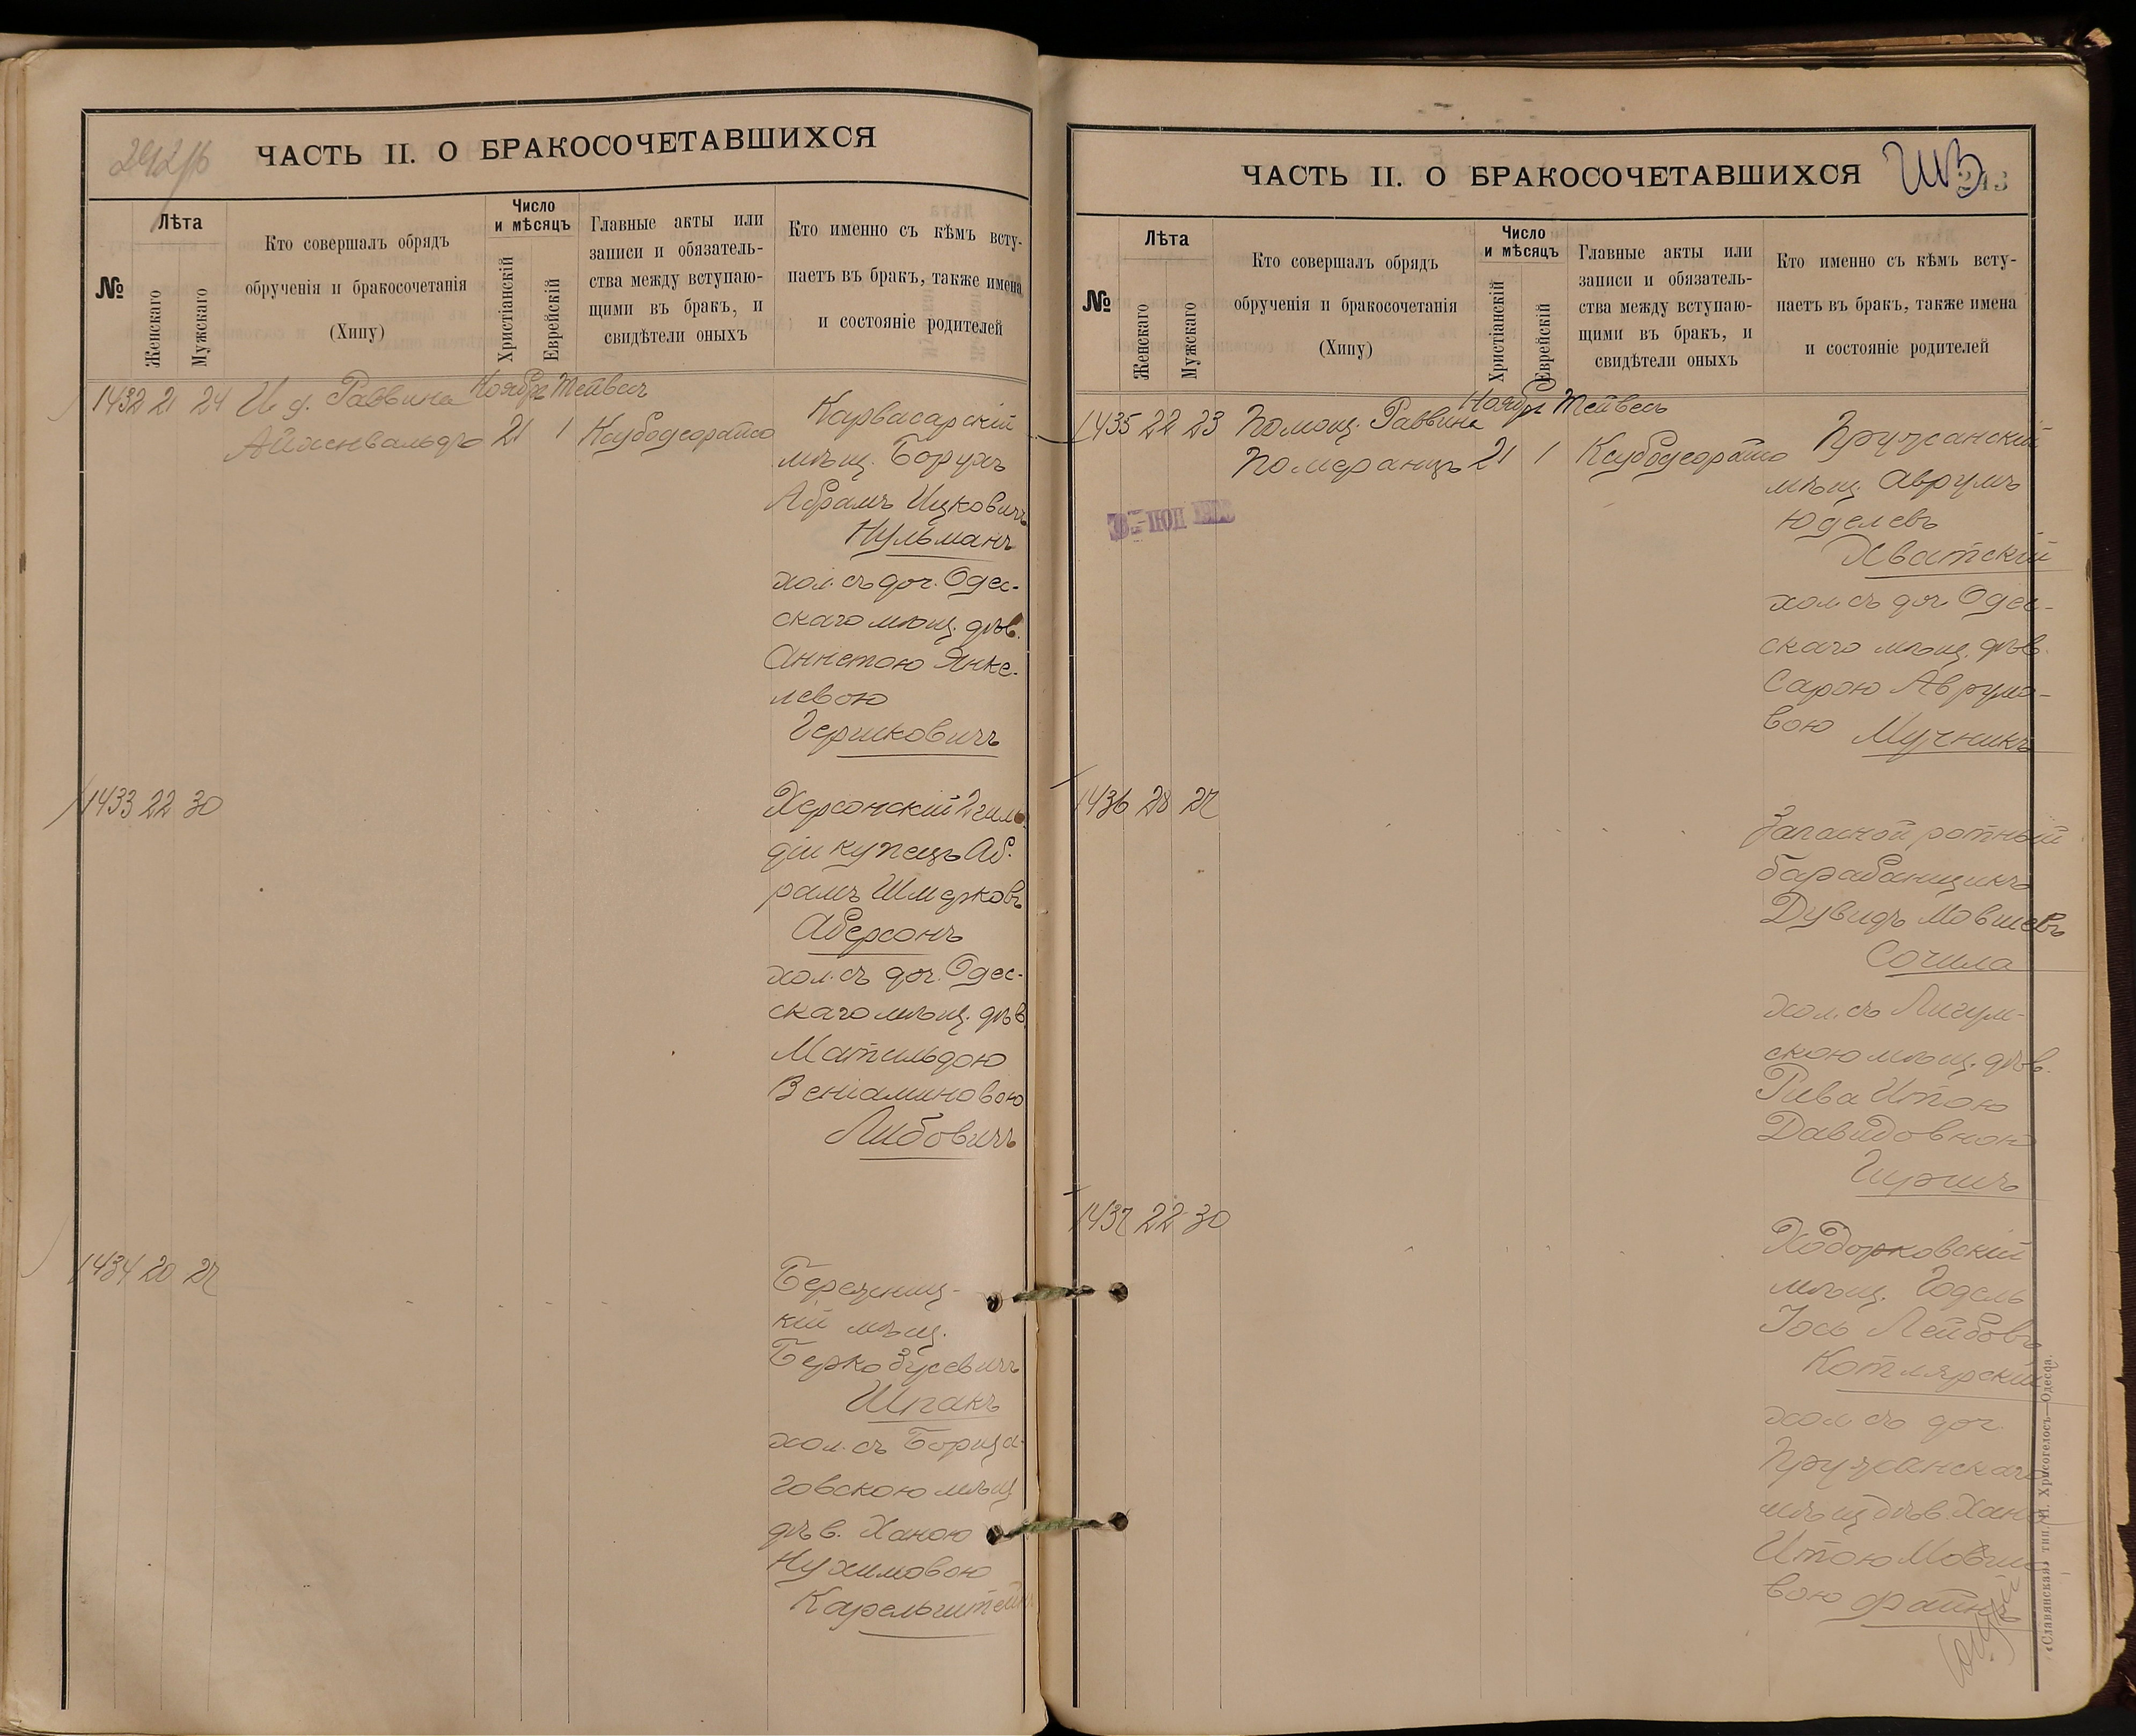 242/б
ЧАСТЬ II. О БРАКОСОЧЕТАВШИХСЯ
№
Лѣта
Женскаго
Мужскаго
Кто совершалъ обрядъ
обрученія и бракосочетанія
(Хипу)
Число
и мѣсяцъ
Христіанскій
Еврейскій
Главные акты или
записи и обязатель-
ства между вступаю-
щими въ бракъ, и
свидѣтели оныхъ
Кто именно съ кѣмъ всту-
паетъ въ бракъ, также имена
и состояніе родителей
1432 21 24 И. д. Раввина Ноябрь Тейвесъ
Айхенвальдъ 21 1 Ксубодеорайсо
Карвасарскій
мѣщ. Борухъ
Абрамъ Ицковичъ
Нульманъ
хол. съ доч. Одес-
скаго мѣщ. дѣв.
Аннетою Янке-
левою
Гершковичъ
1433 22 30
Херсонскій 2 гиль
діи купецъ Аб-
рамъ Шмерковъ
Аберсонъ
хол. съ доч. Одес-
скаго мѣщ. дѣв.
Матильдою
Веніаминовою
Либовичъ
1434 20 27
Березниц-
кій мѣщ.
Берко Зусевичъ
Шпакъ
хол. съ Борща-
говскою мѣщ
дѣв. Ханою
Нухимовою
Карельштейнъ
ЧАСТЬ II. О БРАКОСОЧЕТАВШИХСЯ
243
№
Лѣта
Женскаго
Мужскаго
Кто совершалъ обрядъ
обрученія и бракосочетанія
(Хипу)
Число
и мѣсяцъ
Христіанскій
Еврейскій
Главные акты или
записи и обязатель-
ства между вступаю-
щими въ бракъ, и
свидѣтели оныхъ
Кто именно съ кѣмъ всту-
паетъ въ бракъ, также имена
и состояніе родителей
1435 22 23 Помощ. Раввина Ноябрь Тейвесъ
Померанцъ 21 1 Ксубодеорайсо
Пружанскій
мѣщ. Аврумъ
Юделевъ
Хватскій
хол. съ доч. Одес-
скаго мѣщ. дѣв.
Сарою Аврумо-
вою Мучникъ
1436 28 27
Запасной ротный
барабанщикъ
Дувидъ Мовшевъ
Сочила
хол. съ Лигум-
скою мѣщ. дѣв.
Рива Итою
Давидовною
Гиршъ
1437 22 30
Ходорковскій
мѣщ. Годель
Іось Лейбовъ
Котлярскій
хол. съ доч.
Пружанскаго
мѣщ дѣв. Хана
Итою Мовшо
вою Файнъ
«Славянская» тип. Н. Хрисогелосъ—Одесса.